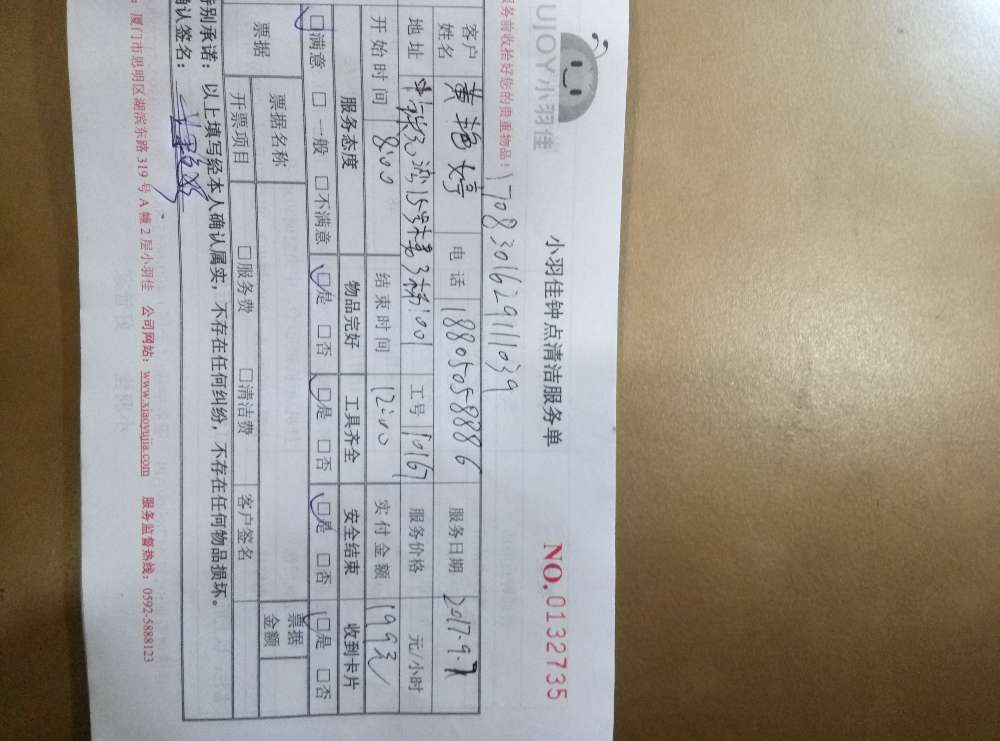 UJOY小羽佳
小羽佳钟点清洁服务单
NO.0132735
服务前收拾好您的贵重物品!
170830162911039
客户姓名 黄艳婷 电话 18805058886 服务日期 2017.9.7
地址 工号 10167 服务价格 元/小时
开始时间 8:00 结束时间 12:00 实付金额 199元
服务态度 物品完好 工具齐全 安全结束 收到卡片
□满意 □一般 □不满意 □是 □否 □是 □否 □是 □否 □是 □否
票据 票据名称 票据金额
开票项目 □服务费 □清洁费 客户签名
特别承诺：以上填写经本人确认属实，不存在任何纠纷，不存在任何物品损坏。
确认签名：
：厦门市思明区湖滨东路 319 号 A 幢 2 层小羽佳 公司网站：www.xiaoyujia.com 服务监督热线：0592-5888123